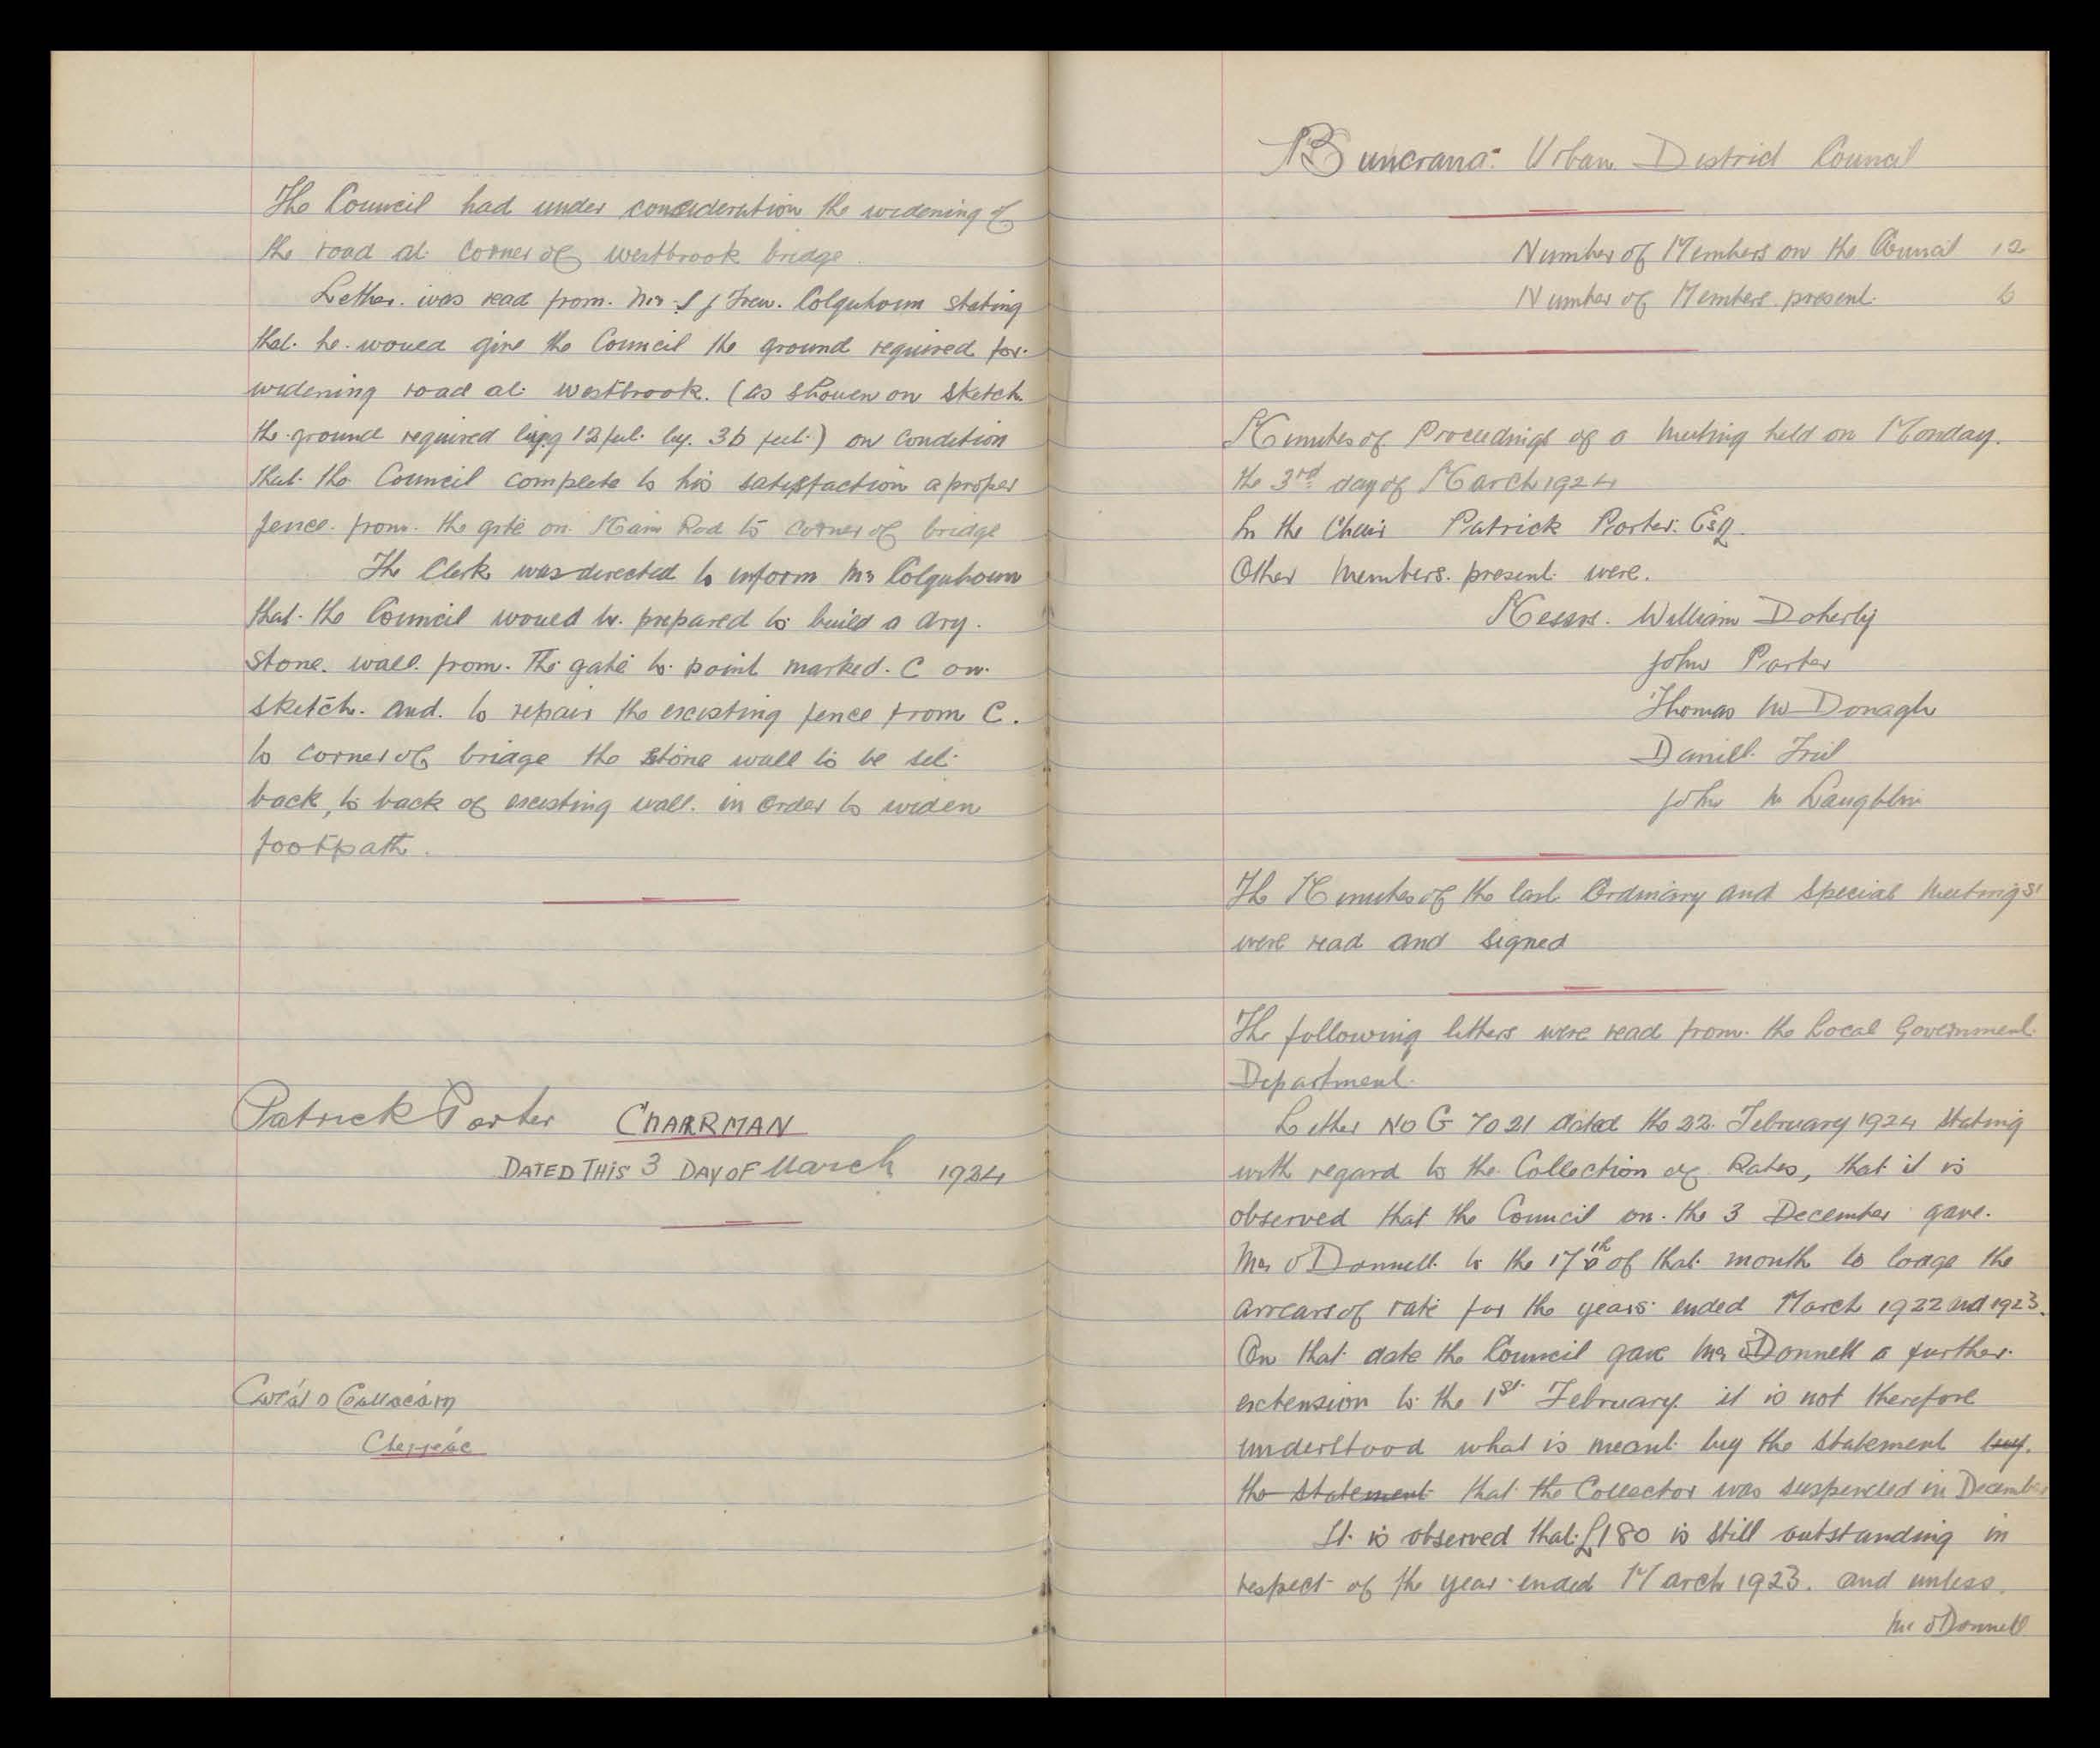 The Council had under consideration the widening of
the road at corner of westbrook bridge.
Letter was read from Mr Colquhoun stating
that he would give the Council the ground required for
widening road at westbrook. (as shown on sketch
the ground required being 12 feet by 36 feet) on condition
that the Council complete to his satisfaction a proper
fence from the gate on Main Rod to corner of bridge
The Clerk was directed to inform Mr Colquhoun
that the Council would be prepared to build a dry
stone wall from the gate to point marked C on
sketch and to repair the excisting fence from C.
to corner of bridge the stone wall to be set
back, to back of excisting wall in order to widen
footpath.
Patrick Porter CHAIRMAN
DATED THIS 3 DAY OF March 1924
Buncrana Urban District Council
Number of Members on the Council 12
Number of Members present 6
Minutes of Proceedings of a Meeting held on Monday
the 3rd day of March 1924
In the Chair Patrick Porter Esq
Other Members present were.
Messrs. William Doherty
John Porter
Thomas Mc Donagh
Daniell Friel
John Mc Laughlin
The Minutes of the last Ordinary and Special Meetings
were read and signed
The following letters were read from the Local Government
Department.
Letter No G 7021 dated the 22 February 1924 stating
with regard to the Collection of Rates, that it is
observed that the Council on the 3 December gave
Mr O'Donnell to the 17th of that month to lodge the
arrears of rate for the years ended March 1922 and 1923.
On that date the Council gave Mr O'Donnell a further
extension to the 1st February it is not therefore
understood what is meant by the statement by
the statement that the Collector was suspended in December
It is observed that £180 is still outstanding in
respect of the year ended March 1923. and unless
Mr O'Donnell